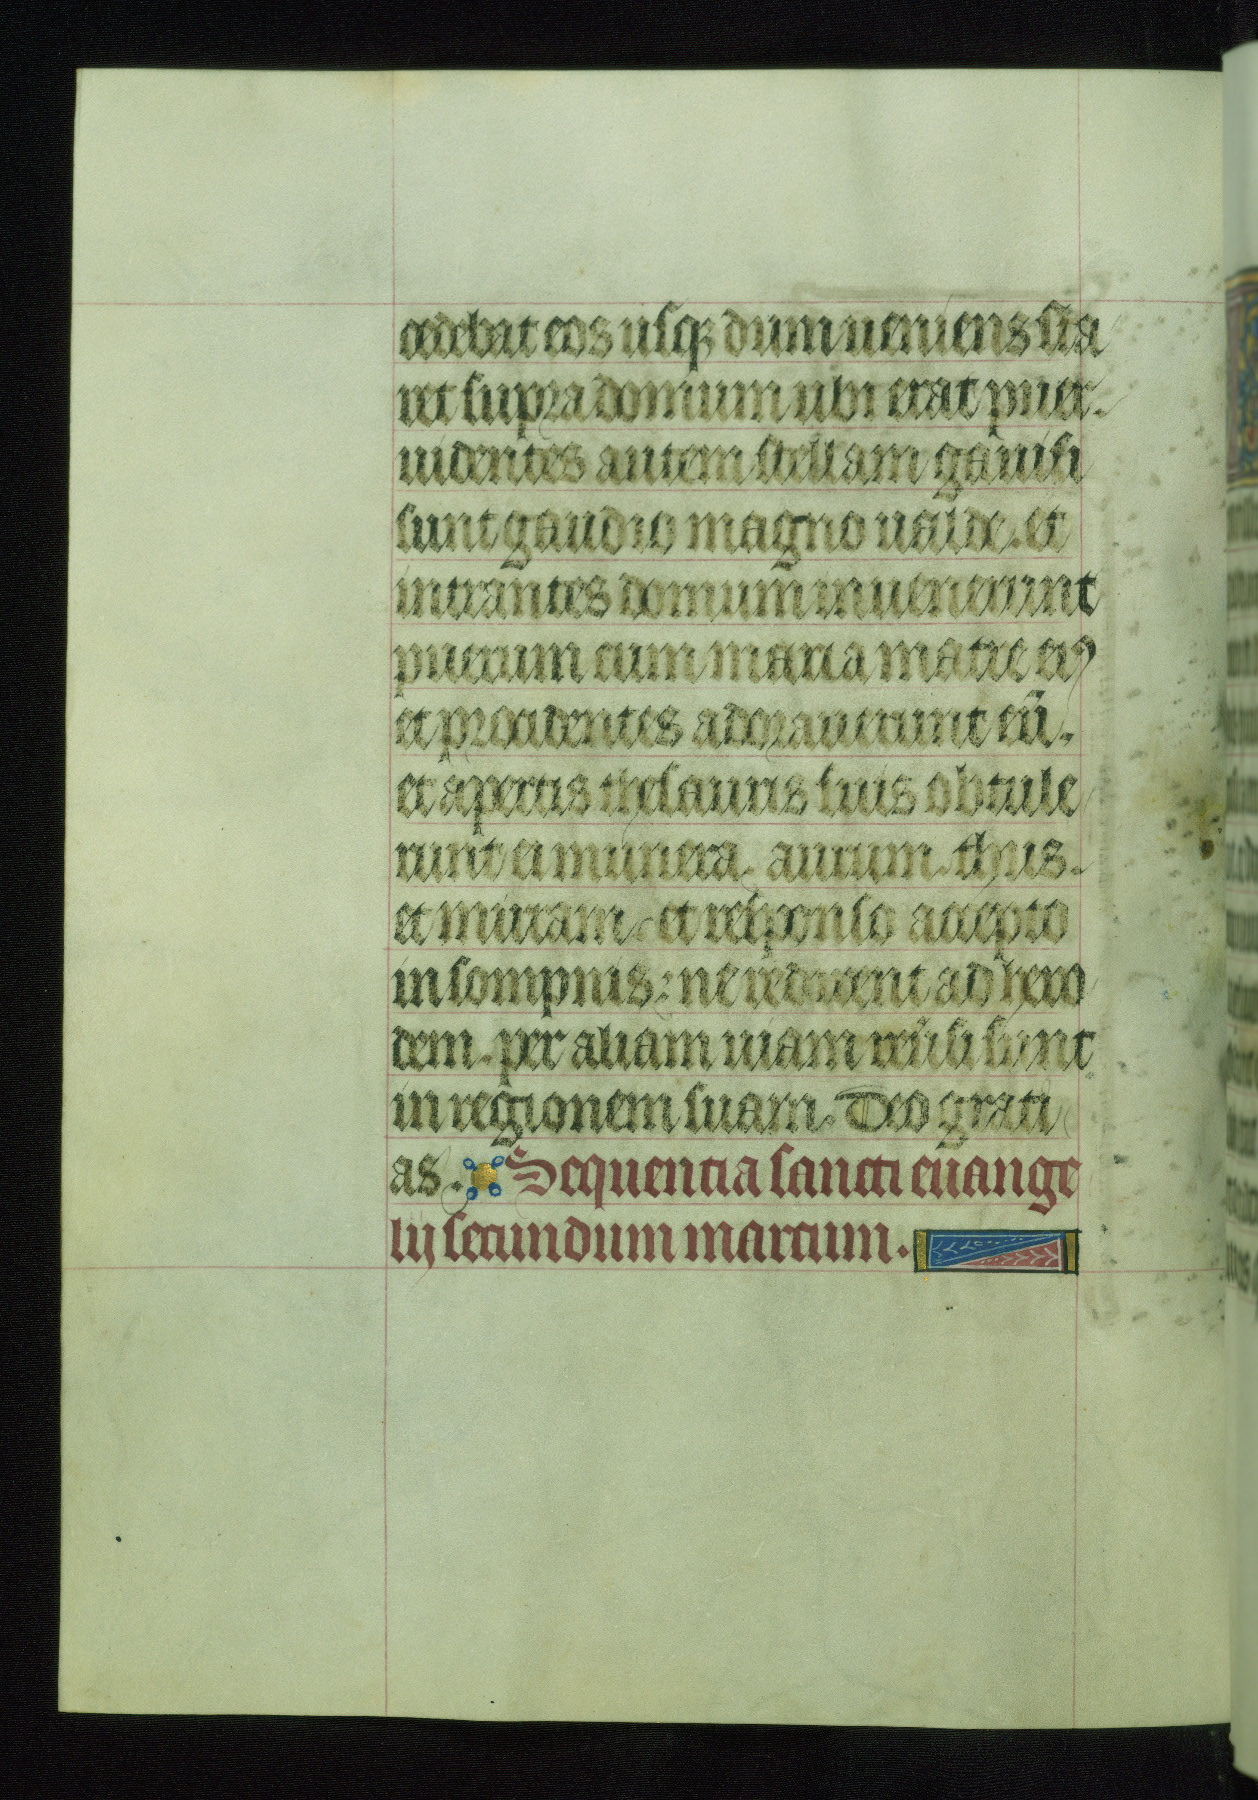 cedebat eos usqꝫ dum ueniens sta
ret supra domum ubi erat puer.
uidentes autem stellam gauisi
sunt gaudio magno ualde. et
intrantes domum inuenerunt
puerum cum maria matre eiꝰ
et procidentes adorauerunt eū.
et apertis thesauris suis obtule
runt ei munera. aurum. thus.
et mirram. et responso accepto
in sompnis: ne redirent ad hero
dem. per aliam uiam reūsi sunt
in regionem suam. Deo grati
as. Sequentia sancti euange
lij secundum marcum.